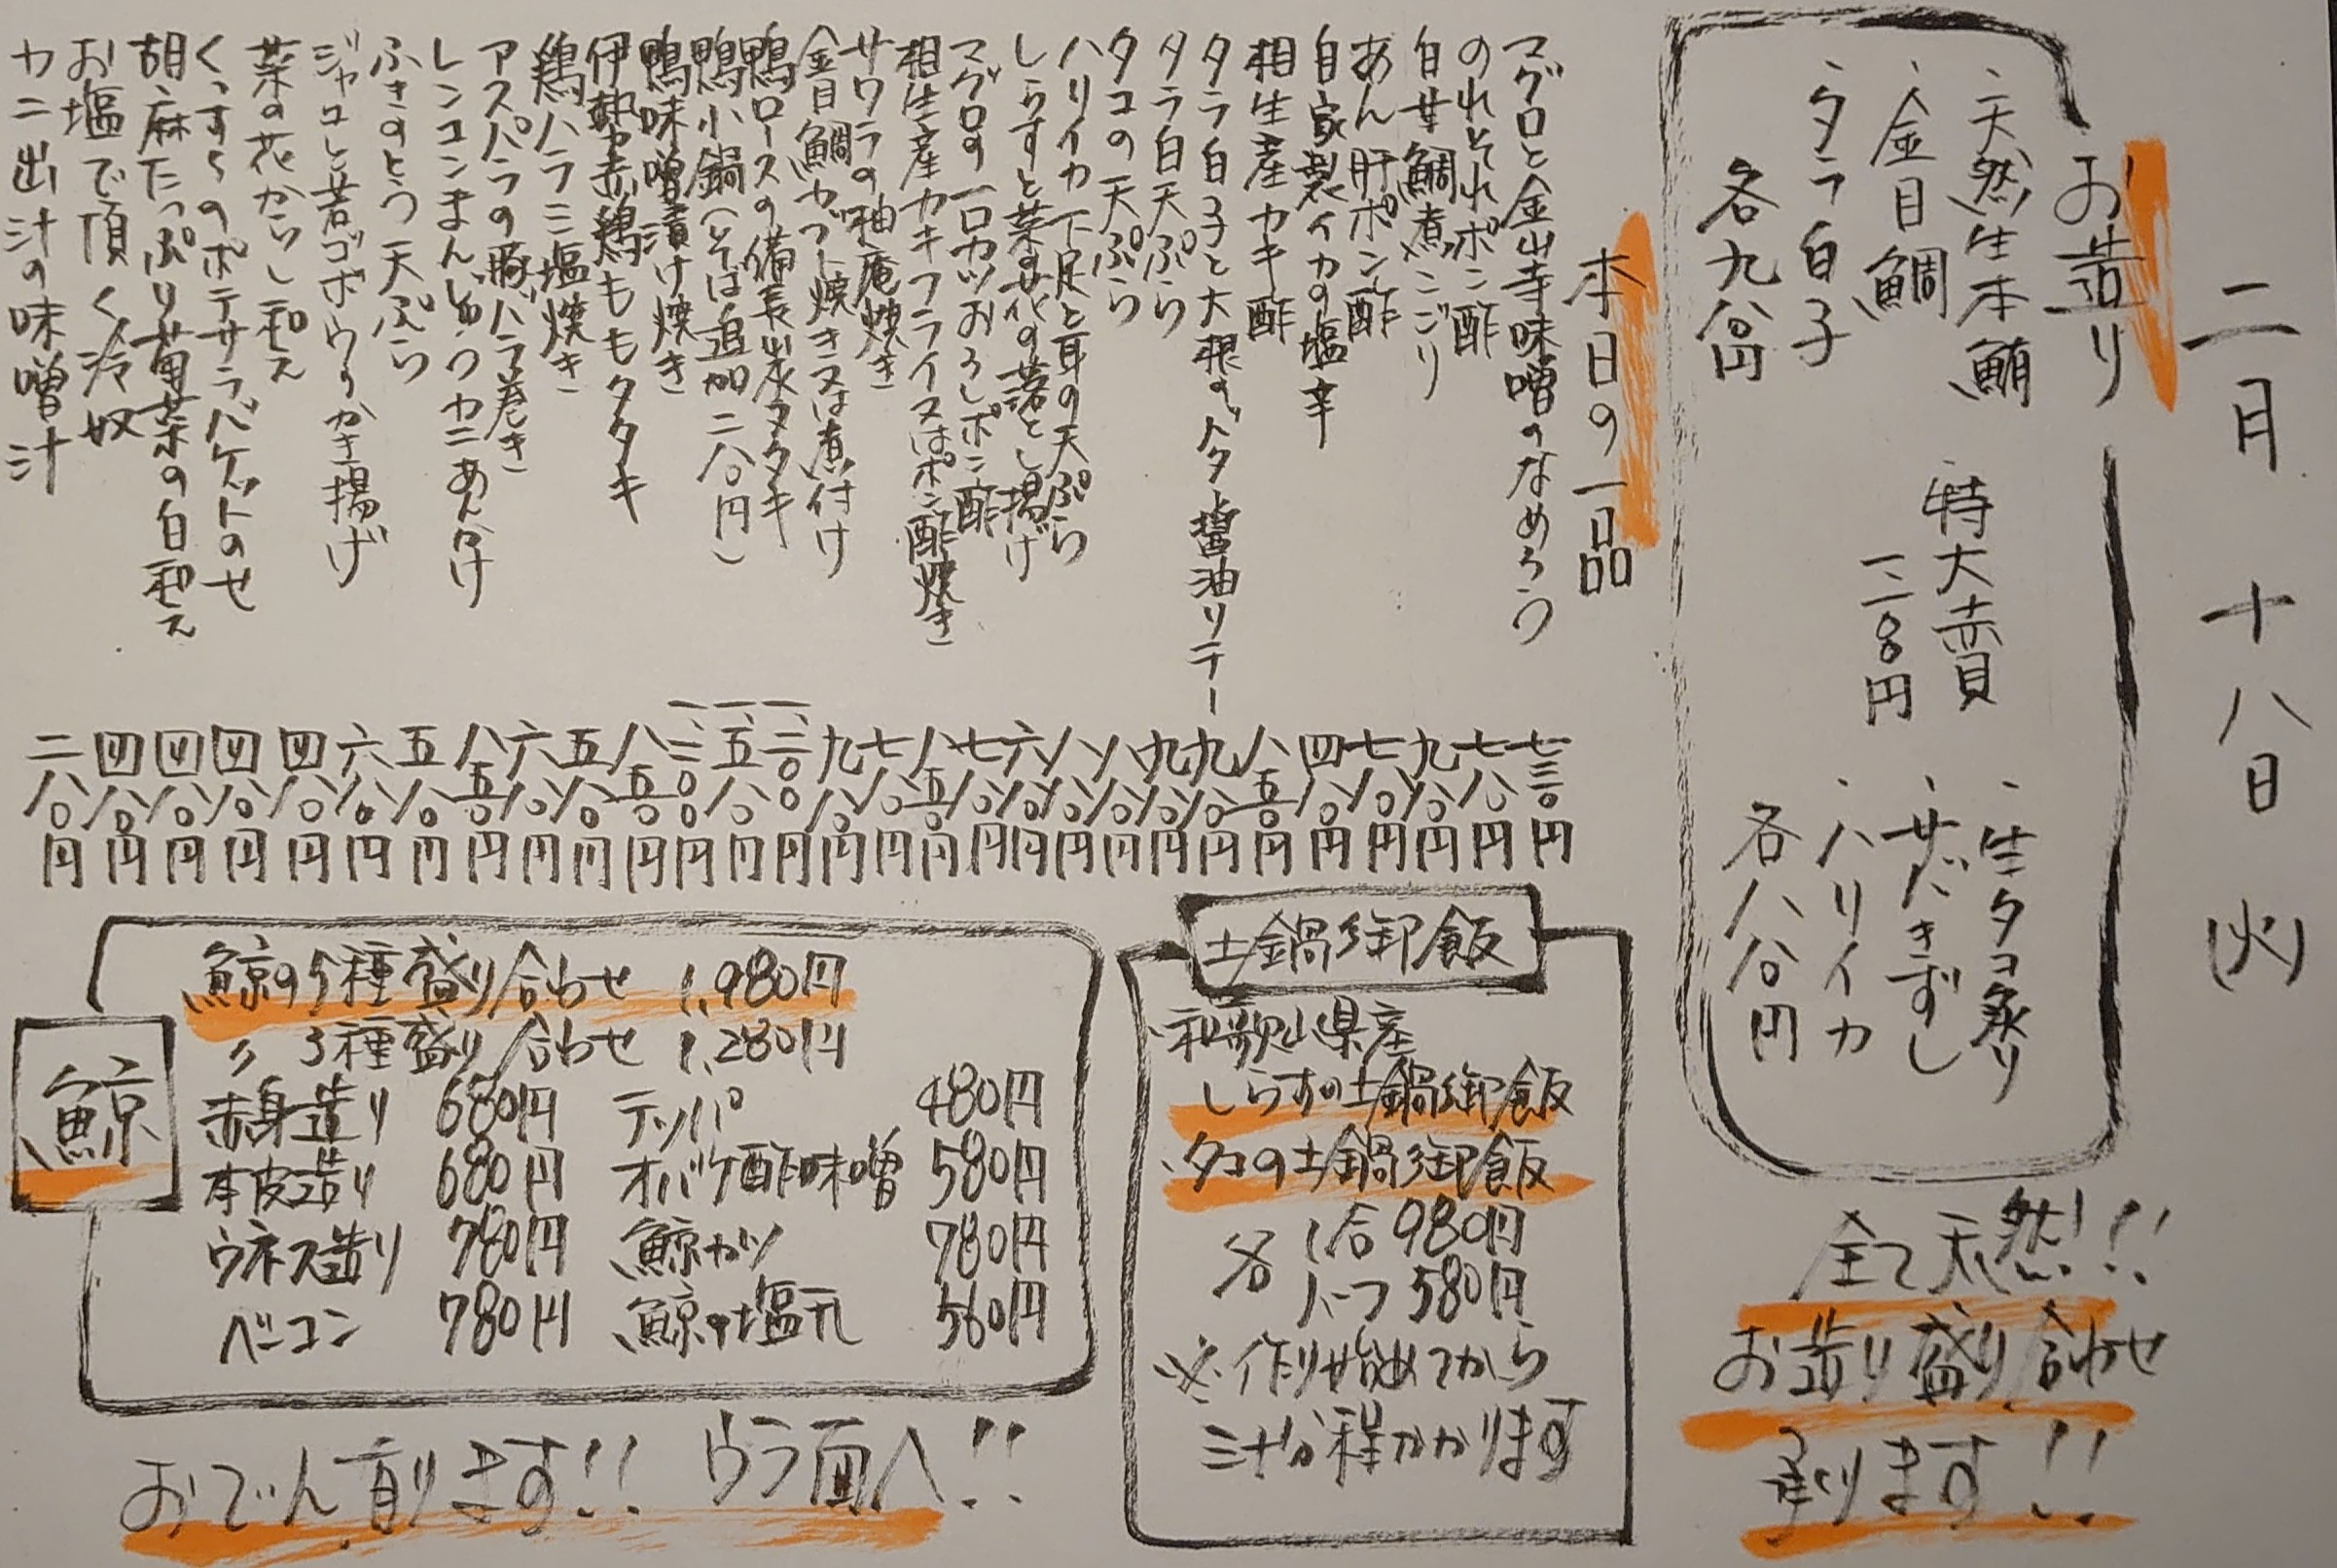 二月十八日(火)
お造り
・天然生本鮪
・金目鯛
・タラ白子
各九八〇円
特大売
一二八〇円
・生タコ炙り
・サバきずし
・ハリイカ
各八八〇円
全て天然!!
お造り盛り合わせ
承ります!!
本日の一品
マグロと金山寺味噌のなめろう 七三〇円
のれそれポン酢 七八〇円
白甘鯛煮こごり 九八〇円
あん肝ポン酢 七八〇円
自家製イカの塩辛 四八〇円
相生産カキ酢 八五〇円
タラ白子と大根のバター醤油リゾテー 九八〇円
タラ白天ぷら 九八〇円
タコの天ぷら 八八〇円
ハリイカ下足と耳の天ぷら 八八〇円
しらすと菜の花の落とし揚げ 六八〇円
マグロの一口カツおろしポン酢 七八〇円
相生産カキフライ又はポン酢焼き 八五〇円
サワラの柚庵焼き 七八〇円
金目鯛カブト焼き又は煮付け 九八〇円
鴨ロースの備長炭タタキ 一、二〇〇円
鴨小鍋(そば追加二八〇円) 一、五八〇円
鴨味噌漬け焼き 一、二〇〇円
伊勢赤鶏ももタタキ 八五〇円
鶏ハラミ塩焼き 五八〇円
アスパラの豚バラ巻き 六八〇円
レンコンまんじゅうカニあんかけ 八五〇円
ふきのとう天ぷら 五八〇円
ジャコと若ゴボウのかき揚げ 六八〇円
菜の花からし和え 四八〇円
くっすらのポテサラバケットのせ 四八〇円
胡麻たっぷり菊菜の白和え 四八〇円
お塩で頂く冷奴 四八〇円
カニ出汁の味噌汁 二八〇円
土鍋御飯
・和歌山県産
しらすの土鍋御飯
・タコの土鍋御飯
各 1合 980円
ハーフ 580円
※作り始めてから
三十分程かかります
鯨
鯨の5種盛り合わせ 1,980円
〃 3種盛り合わせ 1,280円
赤身造り 680円 テッパ 480円
本皮造り 680円 オバケ酢味噌 580円
ウネス造り 780円 鯨カツ 780円
ベーコン 780円 鯨の塩元 560円
おでん有ります!! ウラ面へ!!